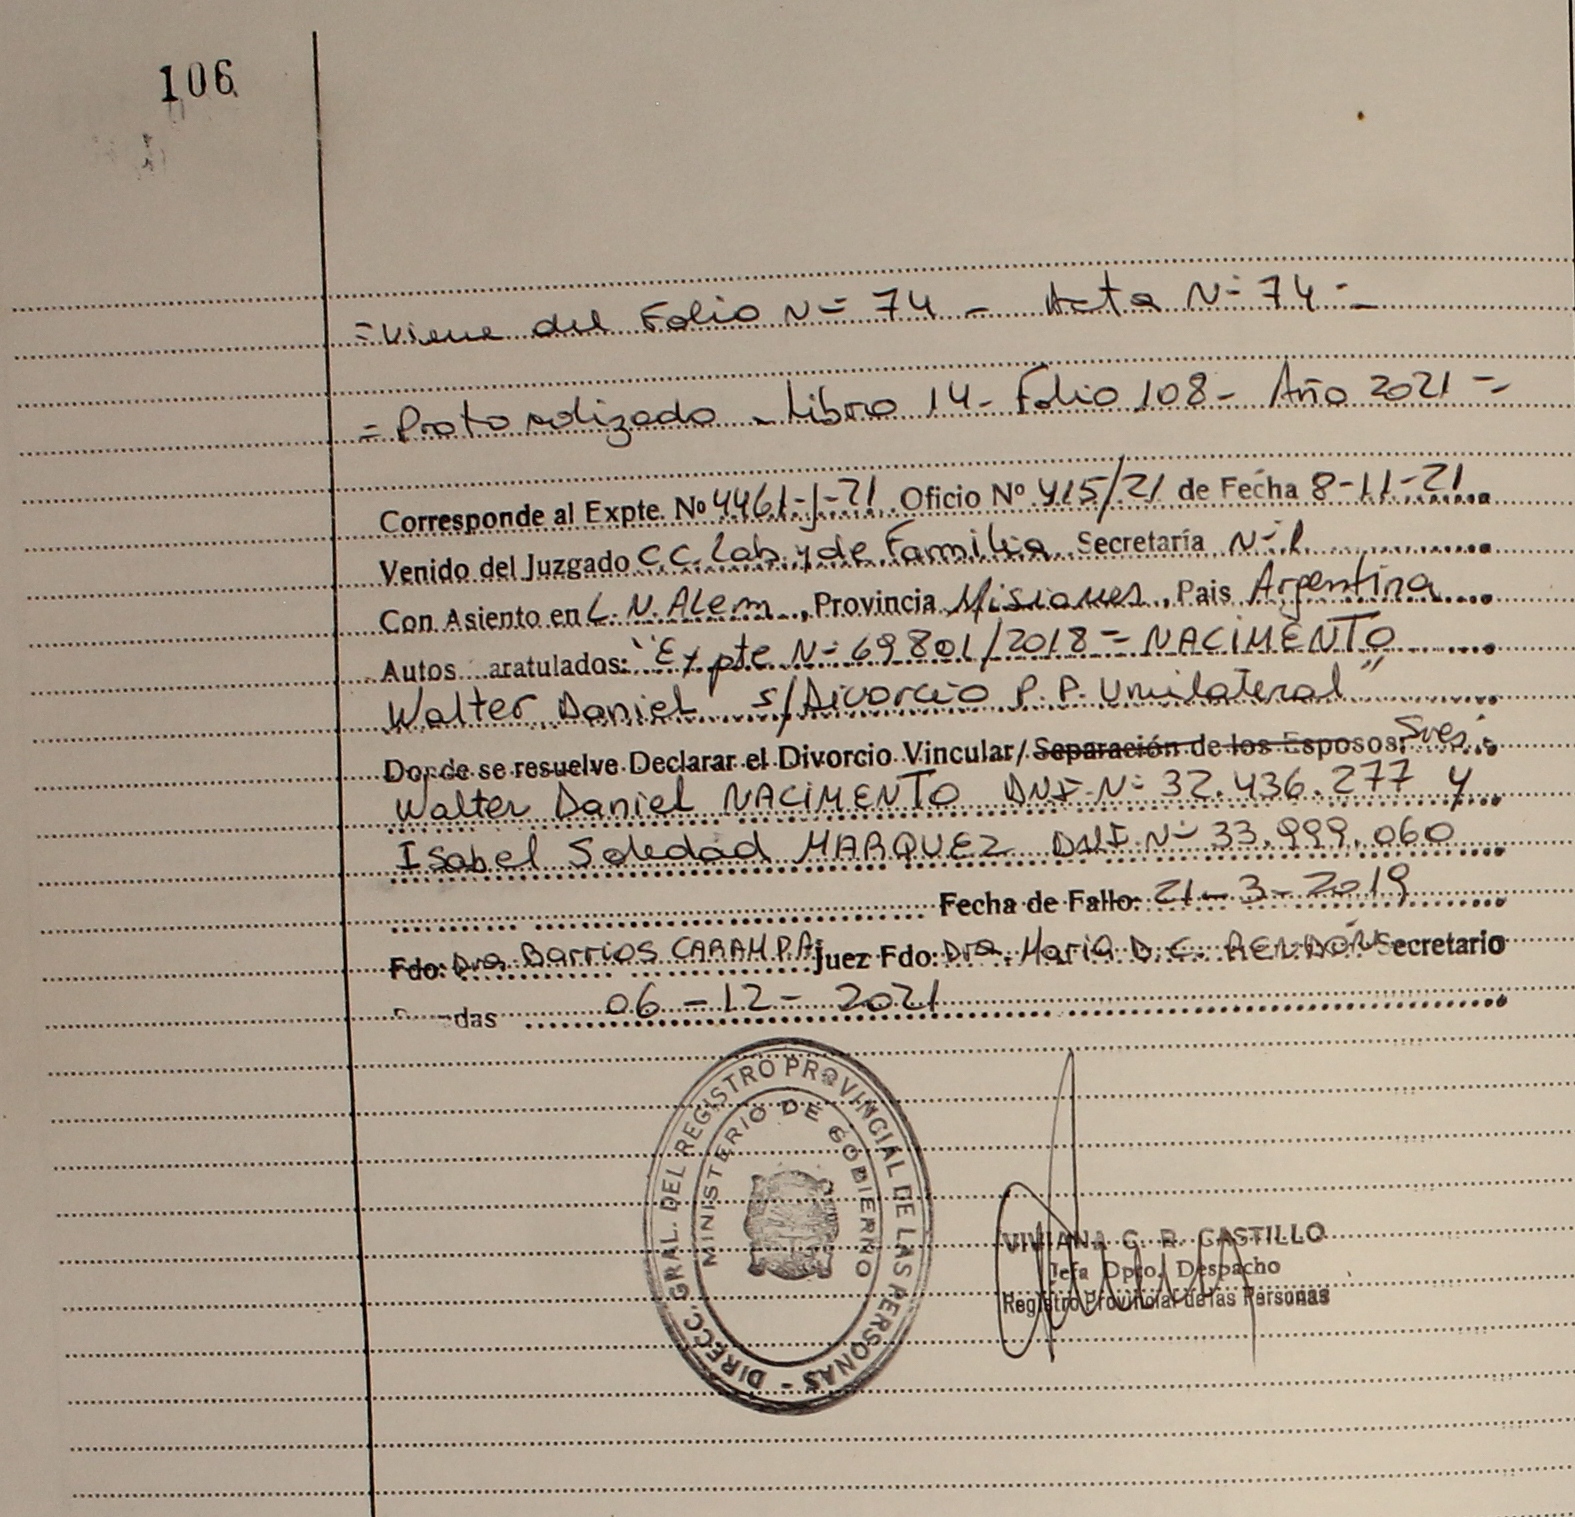 106
= Viene del Folio Nº 74 - Acta Nº 74 -
= Protocolizado - Libro 14 - Folio 108 - Año 2021 =
Corresponde al Expte. Nº 4461-J-21 Oficio Nº 415/21 de Fecha 8-11-21
Venido del Juzgado C.C. Lab. y de Familia Secretaría Nº 1
Con Asiento en L. N. Alem, Provincia Misiones, Pais Argentina
Autos aratulados: "Expte Nº 69801/2018 = NACIMENTO
Walter Daniel s/Divorcio P.P. Unilateral"
Donde se resuelve Declarar el Divorcio Vincular/Separación de los Esposos: Sres.
Walter Daniel NACIMENTO DNI Nº 32.436.277 y
Isabel Soledad MARQUEZ DNI Nº 33.999.060
Fecha de Fallo: 21-3-2019
Fdo: Dra Barrios CARAMPA Juez Fdo: Dra. Maria D.C. Secretario
das 06-12-2021
DIRECC. GRAL. DEL REGISTRO PROVINCIAL DE LAS PERSONAS -
MINISTERIO DE GOBIERNO
VIVIANA G. R. CASTILLO
Jefa Dpto. Despacho
Registro Provincial de las Personas